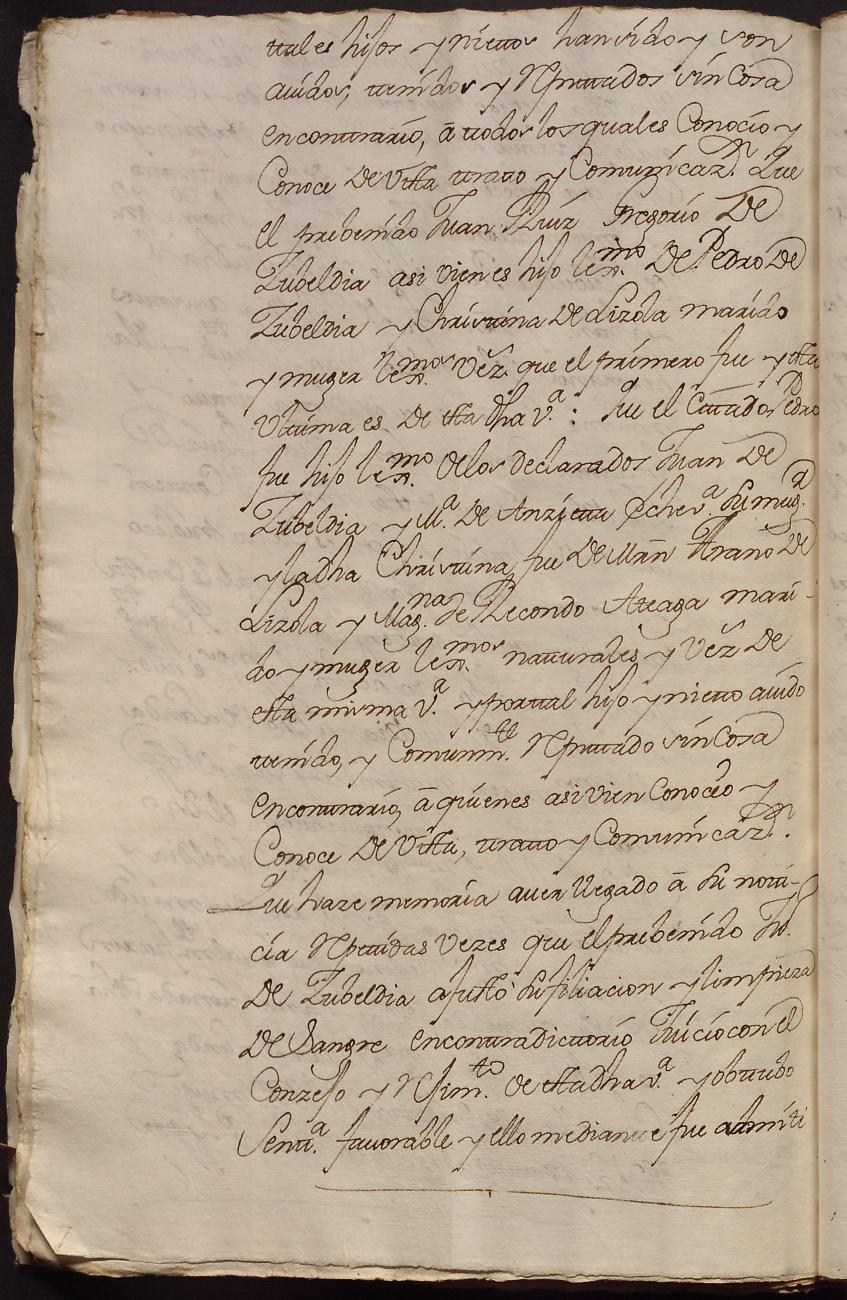 tales hijos y nietos han sido y son
auidos, tenidos y Reputados sin Cosa
encontrario, â todos los quales Conocio y
Conoce De Vista trato y Comunicaz.on Que
el prebenido Juan Ruiz Gregorio De
Zubeldia asi vien es hijo lex.mo De Pedro De
Zubeldia y Christina De Lizola marido
y muger lex.mos Vez.s que el primero fue y esta
Vltima es De esta dha v.a : Que el Citado Pedro
fue hijo lex.mo delos declarados Juan De
Zubeldia y M.a De Anzieta Echev.a Su mug.r
y la dha Christina, fue De Mrn Arano De
Lizola y Mag.na de Recondo Ateaga mari-
do y muger lex.mos naturales y Vez.s De
esta misma v.a y por tal hijo y nieto auido
tenido, y Comunm.te Reputado sin Cosa
encontrario, â quienes asi vien Conocio y
Conoce De Vista, trato y Comunicaz.on.
Que haze memoria auer llegado â Su noti-
cia Repetidas Vezes que el prebenido Jn.
De Zubeldia ajustó Su filiacion y limpieza
De Sangre encontradictorio Juicio con el
Conzejo y Rejim.to de esta dha v.a y obtubo
Sent.a fauorable y ello mediante fue admiti